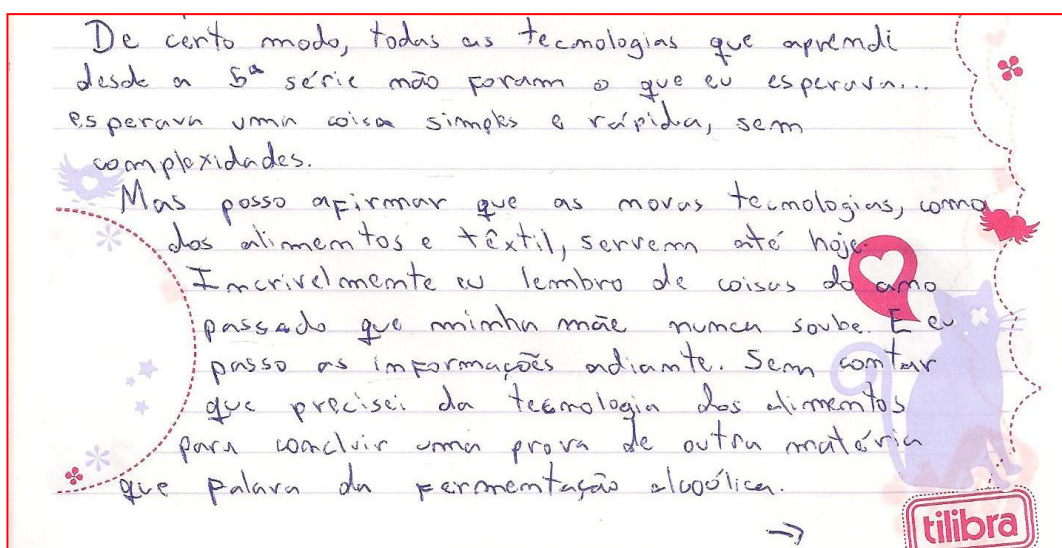 De certo modo, todas as tecnologias que aprendi
desde a 5ª série não foram o que eu esperava...
esperava uma coisa simples e rápida, sem
complexidades.
Mas posso afirmar que as novas tecnologias, como
dos alimentos e têxtil, servem até hoje.
Incrivelmente eu lembro de coisas do ano
passado que minha mãe nunca soube. E eu
passo as informações adiante. Sem contar
que precisei da tecnologia dos alimentos
para concluir uma prova de outra matéria
que falava da fermentação alcoólica.
→
tilibra